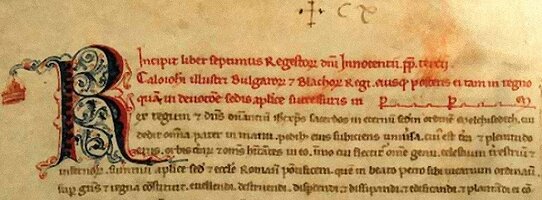 CX
Incipit liber septimus Regestor dni Innocentii pp tercii
Caloiohi illustri Bulgaror et Blachor Regi. eiusq posteris ei tam in regno
quam in devotõe sedis aplice successuris in PP M
Rex regum et dns dñantiũ sacerdos in eternũ scdm ordinẽ melchisedech, cui
dedit omia pater in manu. pedib eius subiciens universa. cui est tra et plenitudo
eius, orbis trar et oms hitantes in eo. imo cui flectit omne genu. celestium trestriũ et
infernor. summũ aplice sed et ecclie Romane põtificem. quem in beato petro sibi vicarium ordinavit.
sup gtes et regna cõstituit. evellendi. destruendi. disperdendi et dissipandi. et edificandi. et plantandi ei cõ